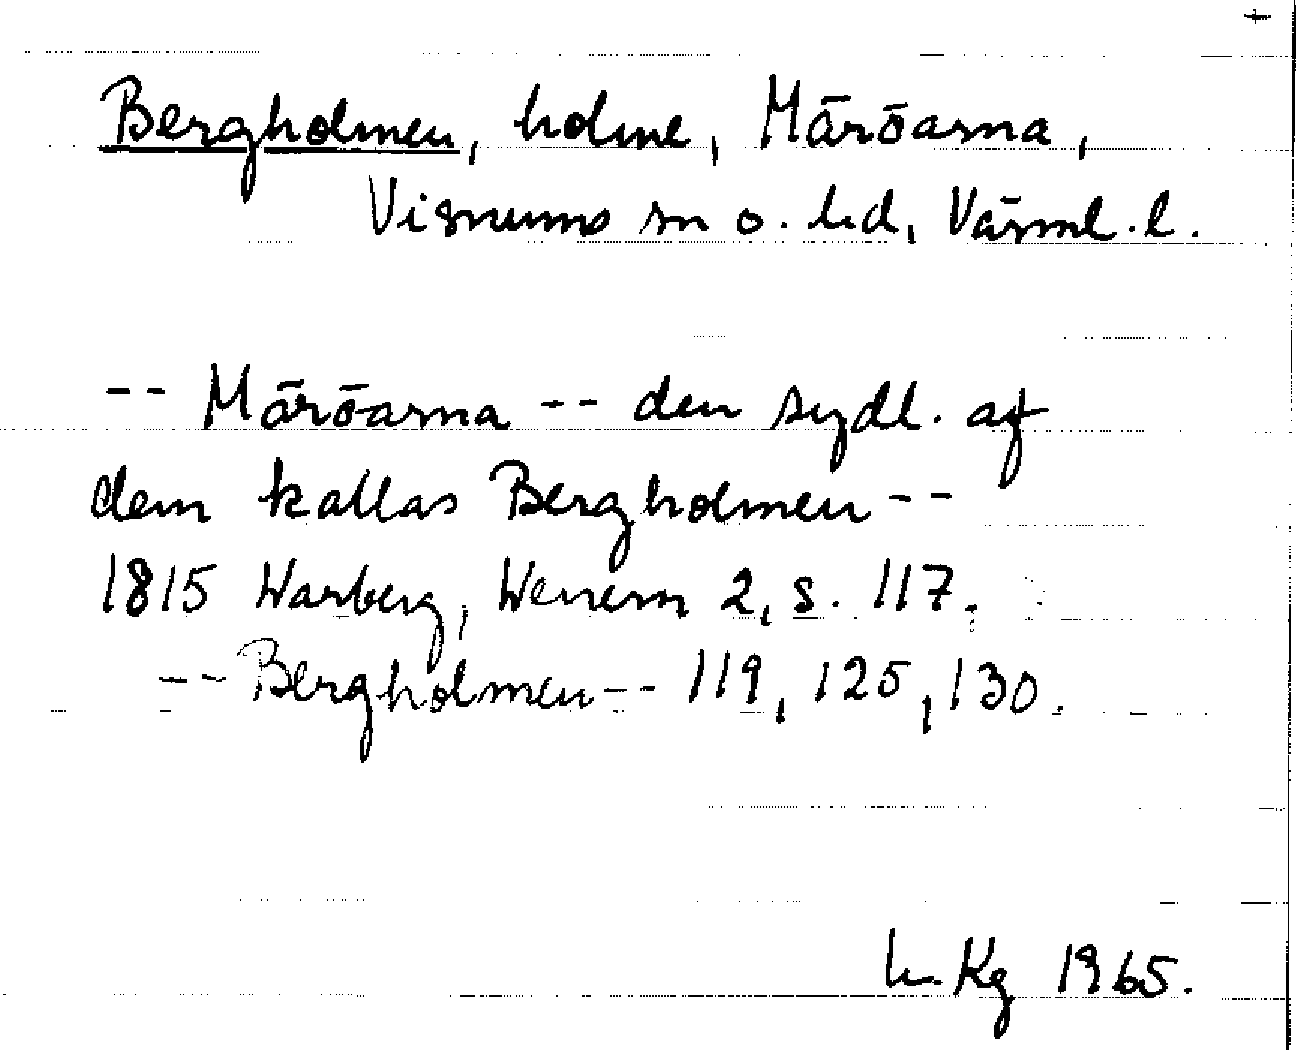 +
Bergholmen, holme, Märöarna,
Visnums sn o. hd, Värml. l.
-- Märöarna -- den sydl. af
dem kallas Bergholmen --
1815 Warberg, Wenern 2, s. 117.
-- Bergholmen -- 119, 125, 130.
Kg 1965.